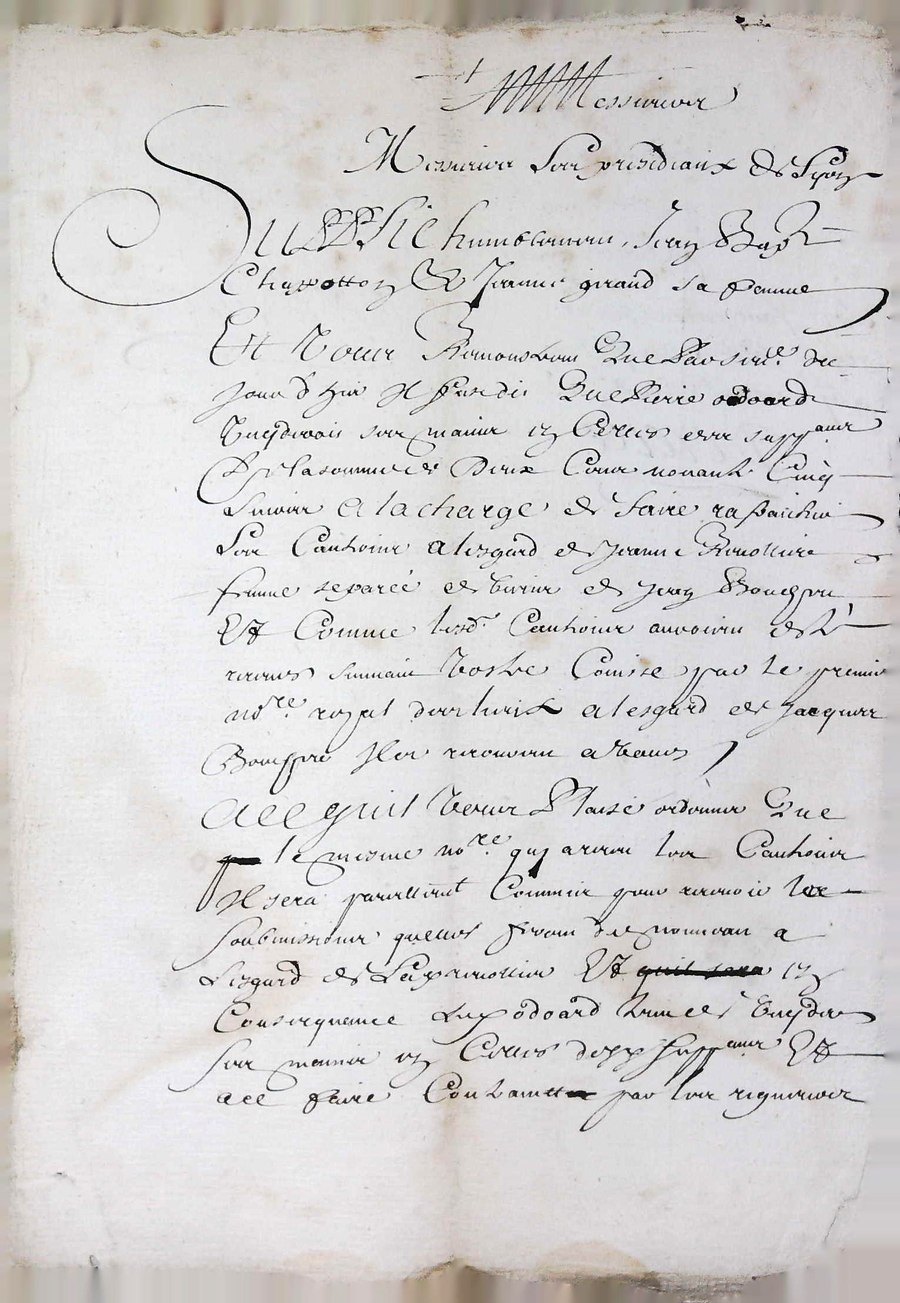 Messieurs
Messieurs Les presidiaux de Lyon
Supplie humblement Jean Bapt
Chappotton & Jeanne giraud sa femme
Et Vous Remonstrent Que Par sent.ce du
jour d'hier Il fust dit Que Pierre odoard
Vuyderoit ses mains en Celles des supp.ants
de la somme de Deux Cens nonante Cinq
livres A la charge de faire rafraichir
Les Cautions a lesgard de Jeanne
femme separée de biens de Jean Bouffre
Et Comme lesd. Cautions avoient esté
receues suivant Vostre Comise par le premier
no.re royal a lesgard de Jacques
Bouffre Ils recourent a Vous
Ace quil Vous Plaise ordonner Que
le mesme no.re qui a receu les Cautions
Il sera pareillement Commis pour recevoir les
soubmissions quelles feront de nouveau a
Lesgard de La Et quil sera en
Consequence Led odoard tenu de Vuyder
ses mains en Celles desd supp.ants Et
ace faire Contraint par les rigueurs